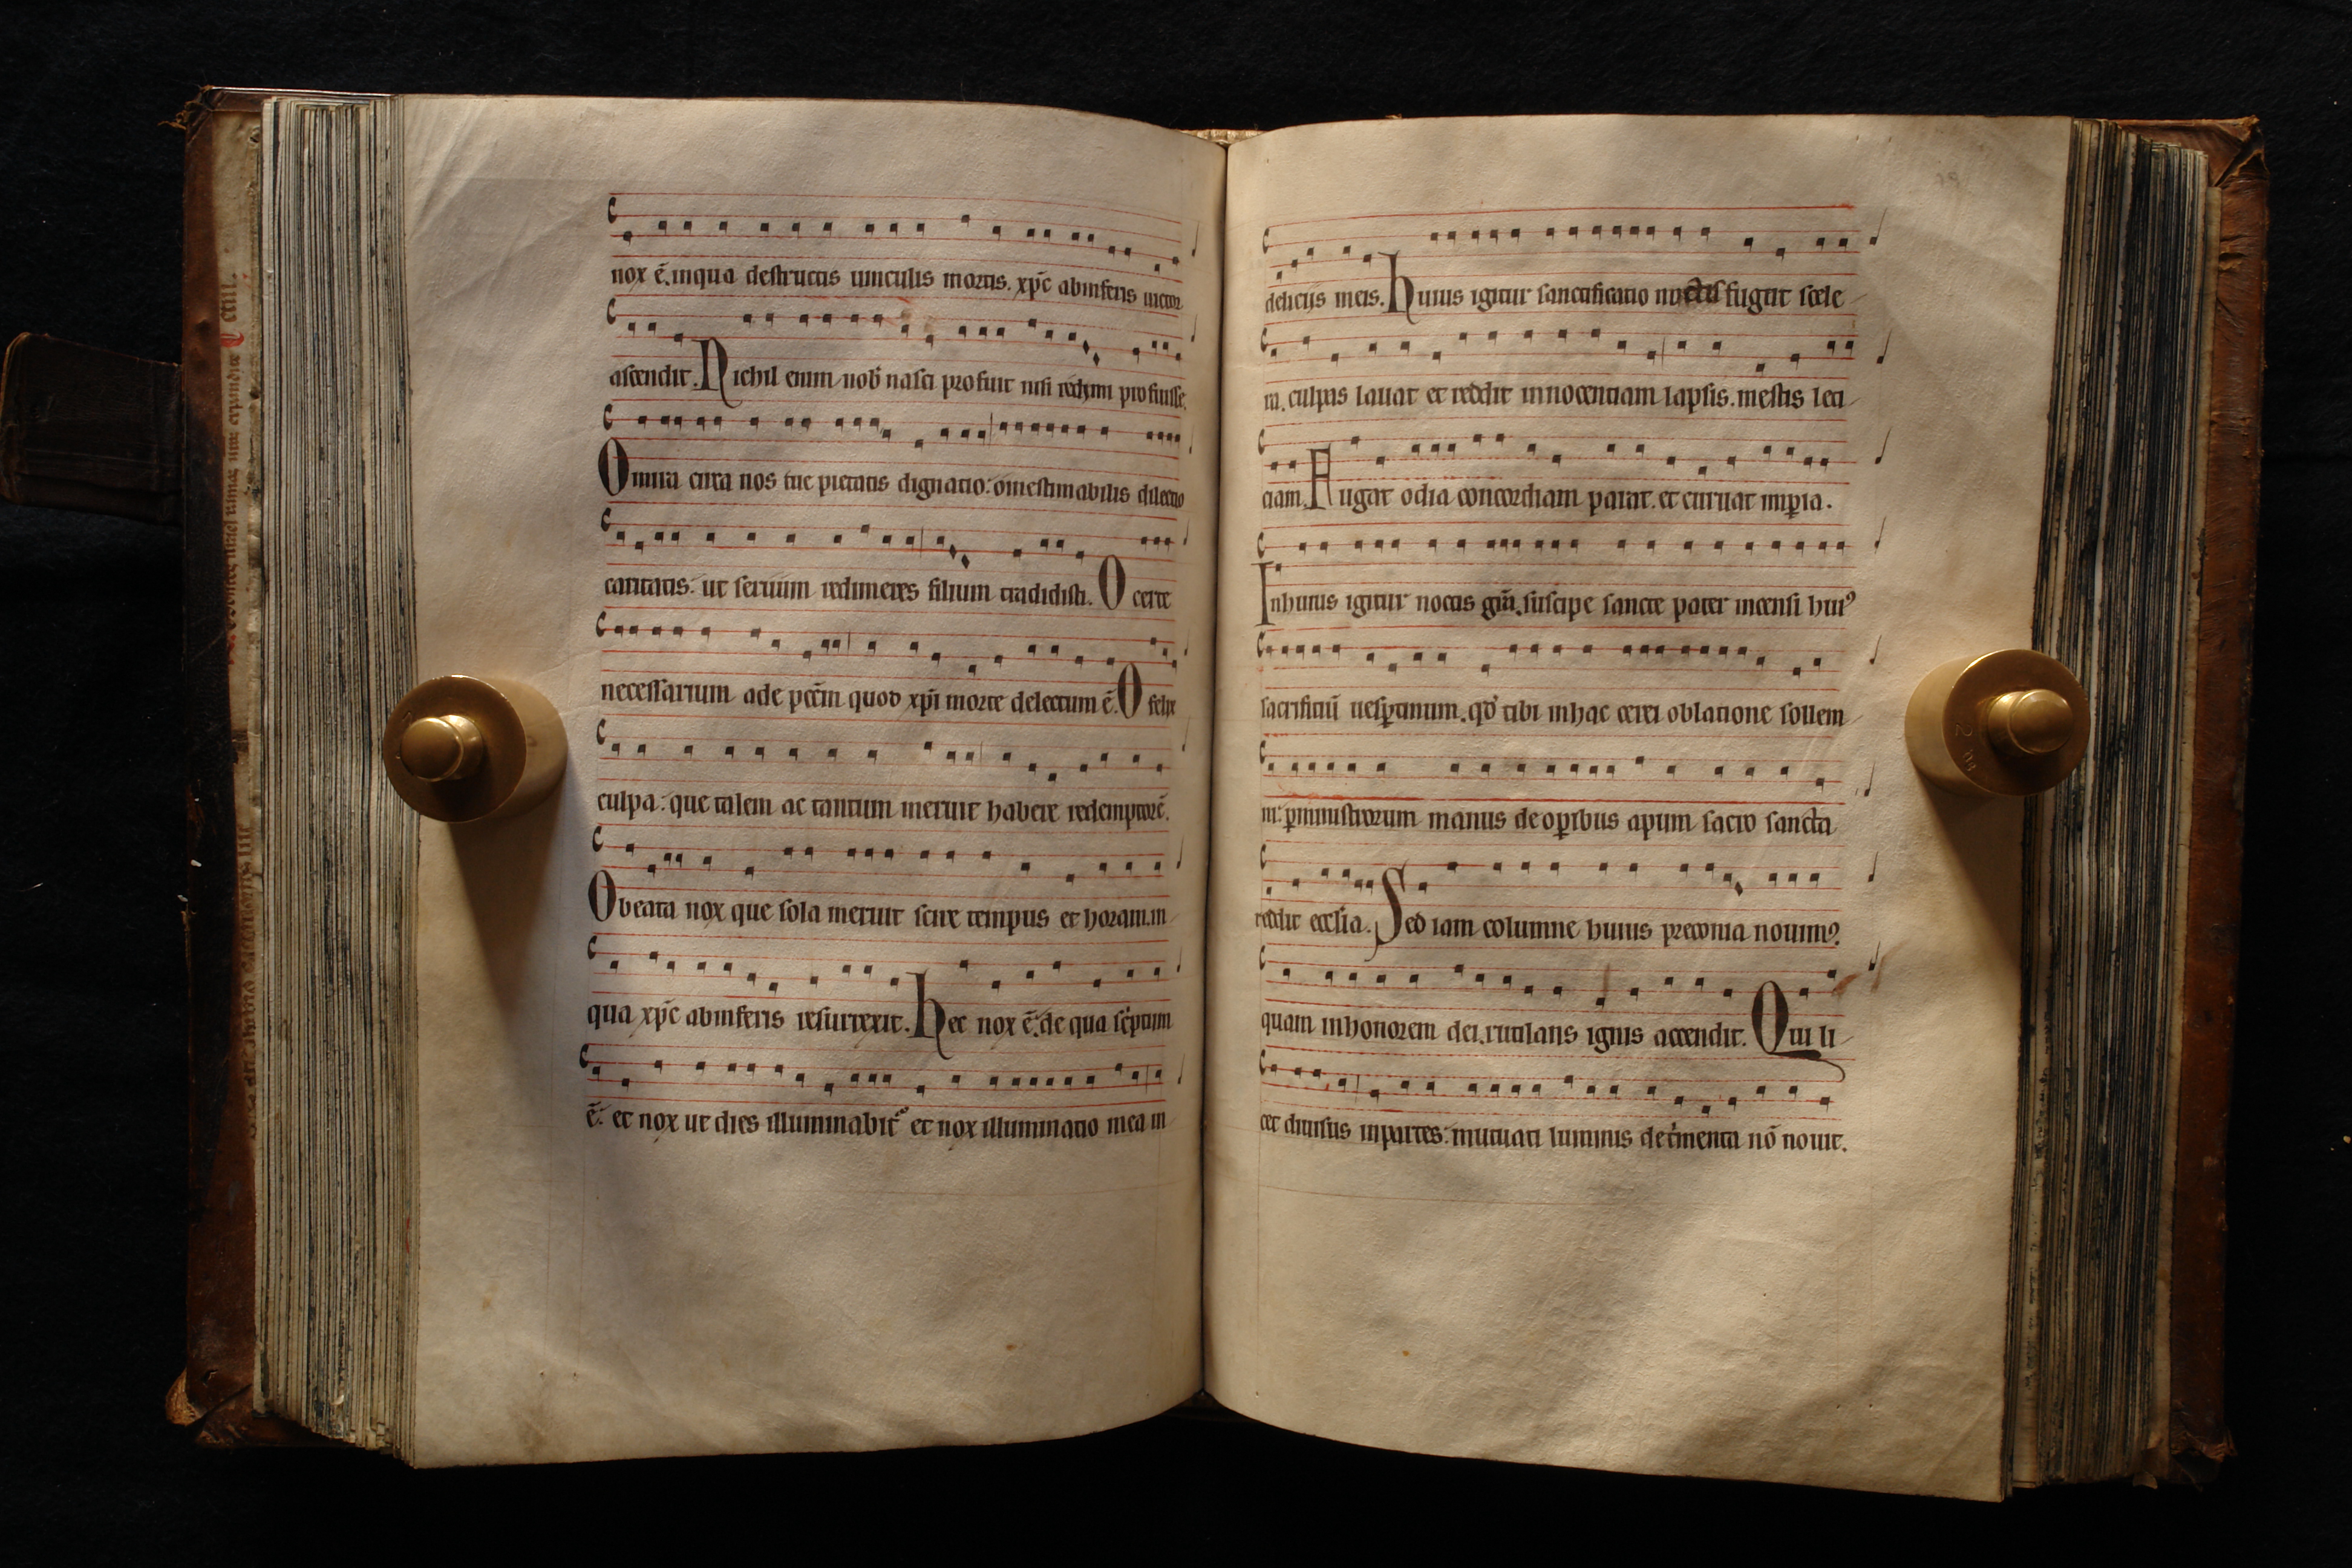 nox ē. inqua destructis uinculis mortis. xp̄c abinferis uictor
ascendit. Nichil enim nob̄ nasci profuit nisi redimi profuisse.
O mira circa nos tue pietatis dignatio: o inestimabilis dilectio
caritatis: ut seruum redimeres filium tradidisti. O certe
necessarium ade pcc̄m quod xp̄i morte deletum ē. O felix
culpa: que talem ac tantum meruit habere redemptorē.
O beata nox que sola meruit scire tempus et horam. in
qua xp̄c abinferis resurrexit. hec nox ē. de qua scriptum
ē: et nox ut dies illuminabit᷑ et nox illuminatio mea in
delicijs meis. huius igitur sanctificatio noctis fugat scele
ra. culpas lauat et reddit innocentiam lapsis. mestis leti
ciam. Fugat odia concordiam parat. et curuat imꝑia.
Inhuius igitur noctis grā. suscipe sancte pater incensi huiꝰ
sacrificiū uesꝑtinum. qd̄ tibi inhac cerei oblatione sollem
ni: ꝑministrorum manus de oꝑibus apum sacro sancta
reddit eccl̄ia. Sed iam columne huius preconia nouimꝰ.
quam inhonorem dei. rutilans ignis accendit. Qui li
cet diuisus inpartes: mutuati luminis detͥmenta nō nouit.